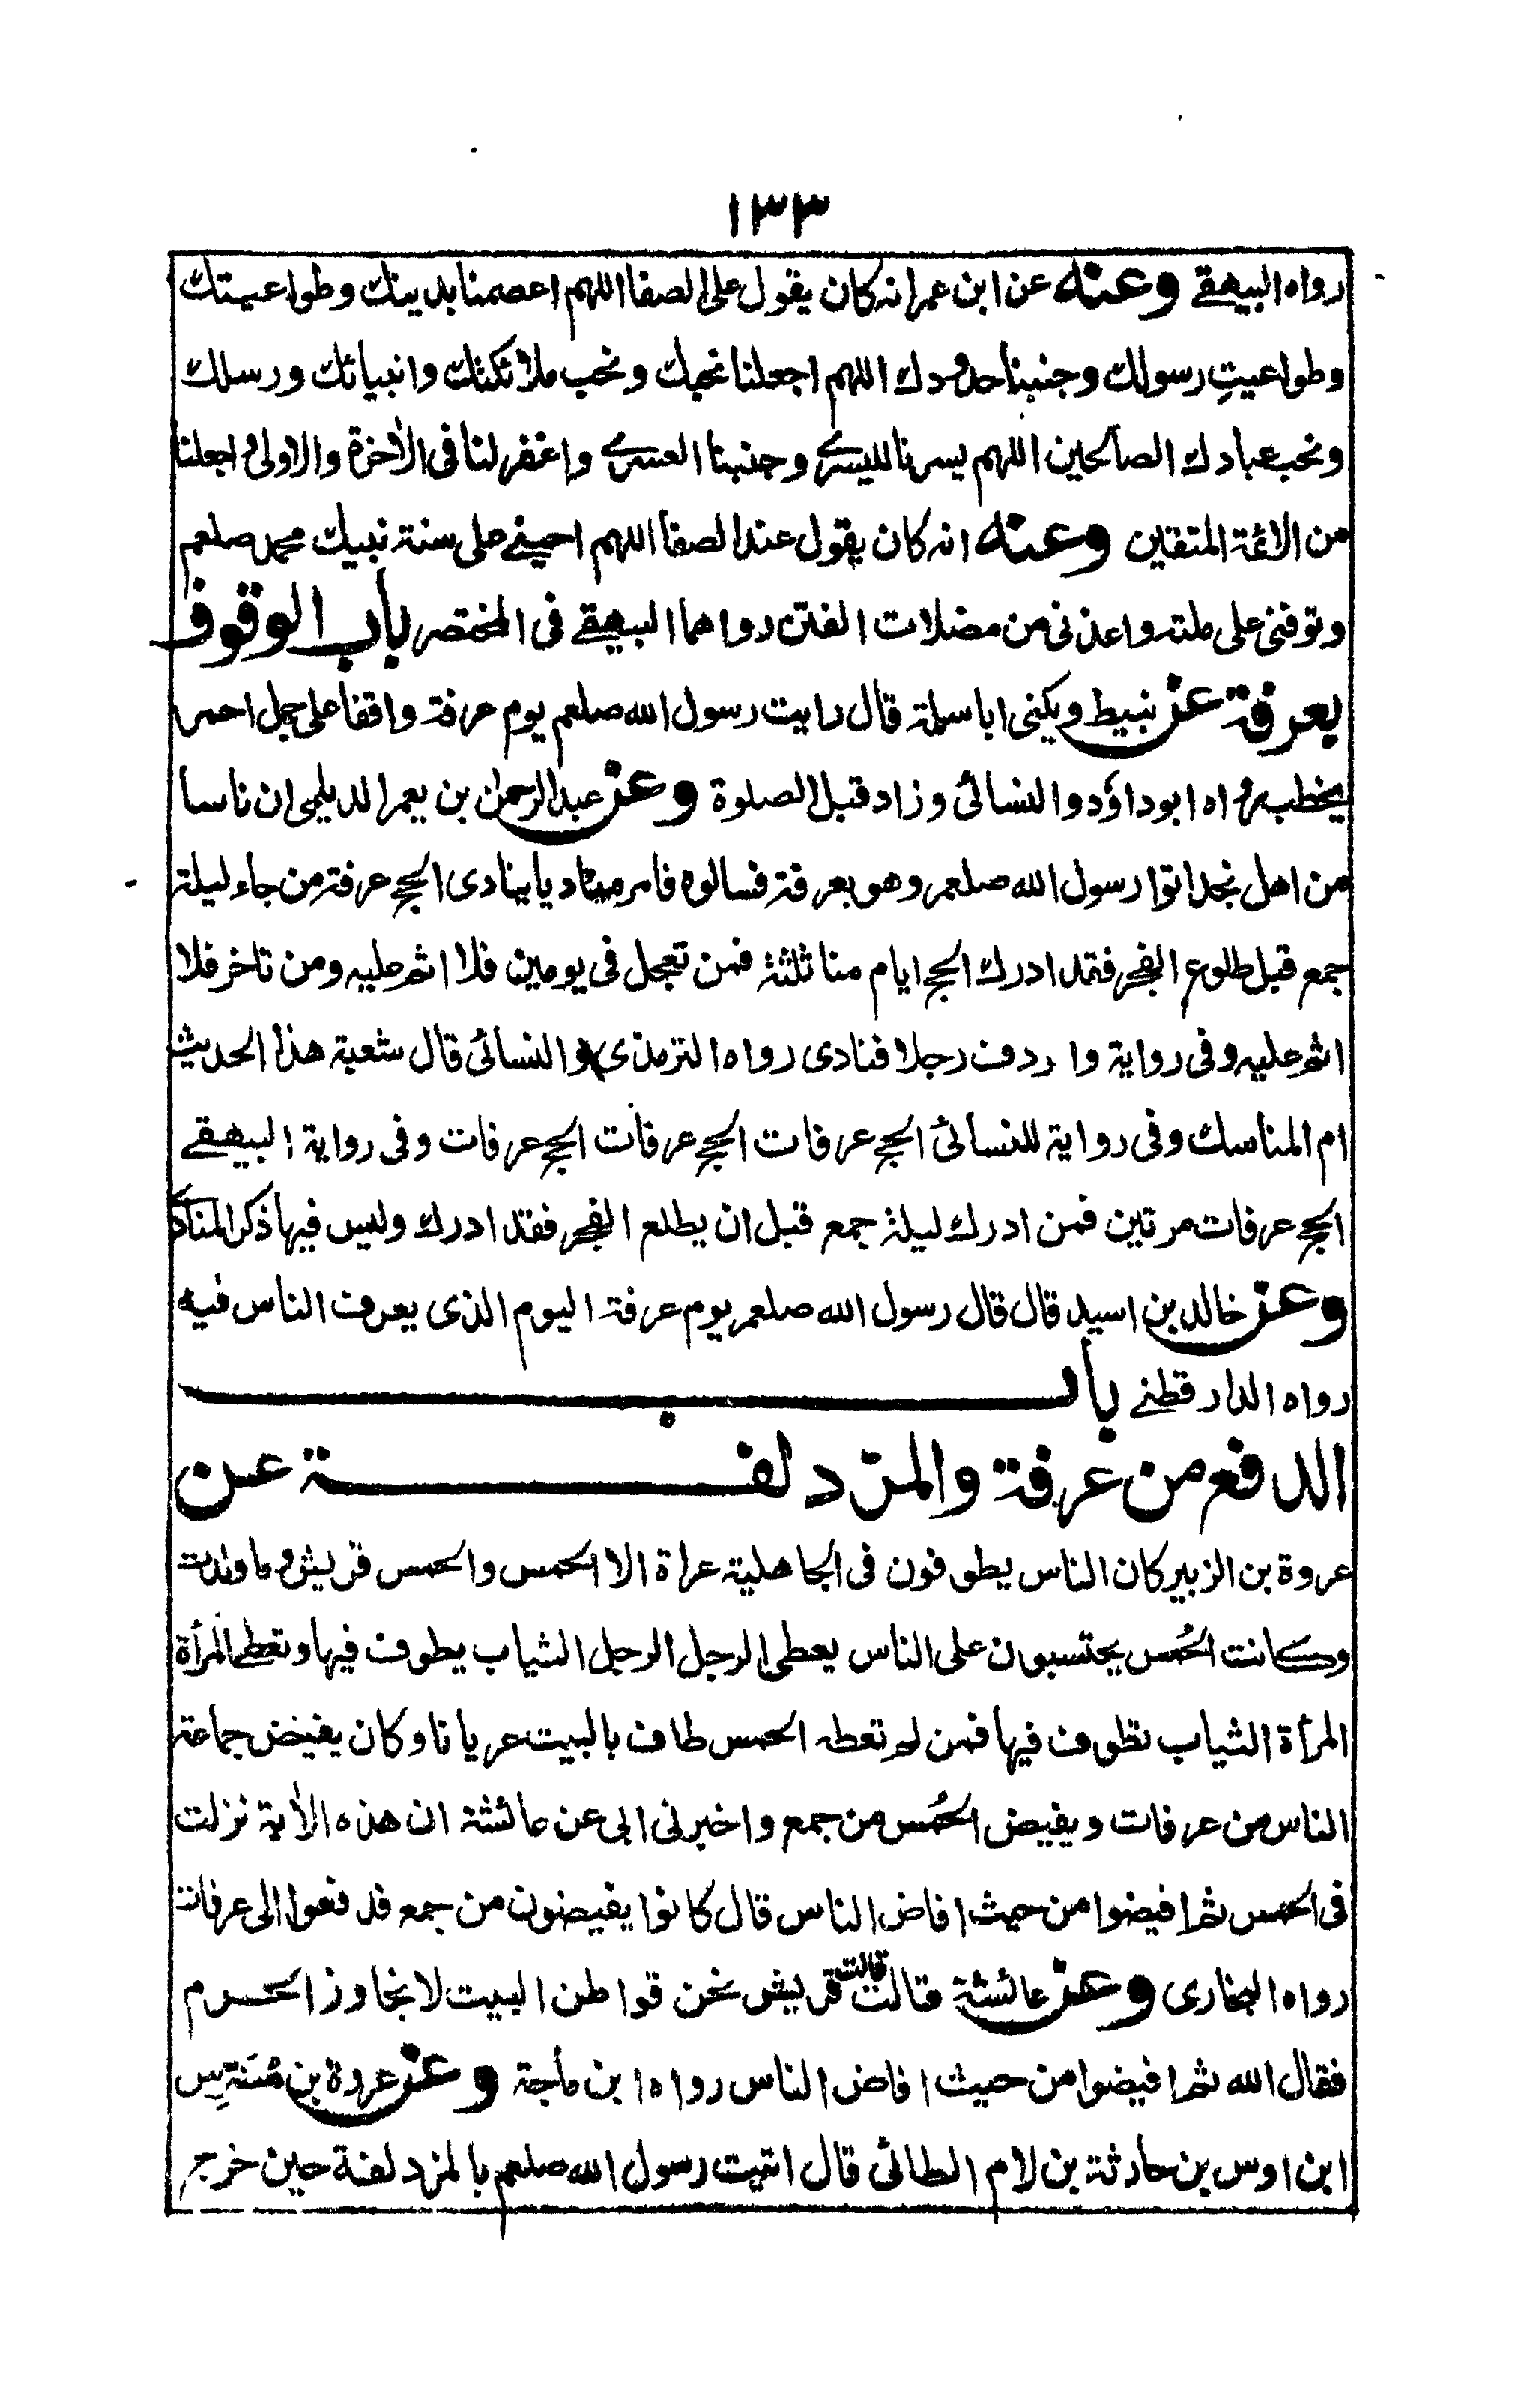 ١٣٣
رواه البيهقے وعنه عن ابن عمر انه كان يقول على الصفا اللهم اعصمنا بدينك وطواعيتك
وطواعيتِ رسولك وجنبنا حدودك اللهم اجعلنا نحبك ونحب ملائكتك وانبيائك ورسلك
ونحب عبادك الصالحين اللهم يسرنا لليسرے وجنبنا العسرے واغفر لنا فى الاٰخرة والاولى واجعلنا
من الائمة المتقين وعنه انه كان يقول عند الصفا اللهم احينے على سنة نبيك محمد صلعم
وتوفنى على ملته واعذنى من مضلات الفتن رواهما البيهقے فى المختصر باب الوقوف
بعرفة عن نبيط ويكنى اباسلمة قال رايت رسول الله صلعم يوم عرفة واقفا على جمل احمر
يخطب رواه ابوداؤد والنسائى وزاد قبل الصلوة وعن عبدالرحمٰن بن يعمر الديلمى ان ناسا
من اهل نجد اتوا رسول الله صلعم وهو بعرفة فسالوه فامر مناديا ينادى الحج عرفة من جاء ليلة
جمع قبل طلوع الفجر فقد ادرك الحج ايام منا ثلثة فمن تعجل فى يومين فلا اثم عليه ومن تاخر فلا
اثم عليه وفى رواية واردف رجلا فنادى رواه الترمذى والنسائى قال شعبة هذا الحديث
ام المناسك وفى رواية للنسائى الحج عرفات الحج عرفات الحج عرفات وفى رواية البيهقے
الحج عرفات مرتين فمن ادرك ليلة جمع قبل ان يطلع الفجر فقد ادرك وليس فيها ذكر
وعن خالد بن اسيد قال قال رسول الله صلعم يوم عرفة اليوم الذى يعرف الناس فيه
رواه الدارقطنے باب
الدفع من عرفة والمزدلفة عن
عروة بن الزبير كان الناس يطوفون فى الجاهلية عراة الا الحمس والحمس قريش وما ولدت
وكانت الحُمس يحتسبون على الناس يعطى الرجل الرجل الثياب يطوف فيها وتعطى المرأة
المرأة الثياب تطوف فيها فمن لم تعطه الحمس طاف بالبيت عريانا وكان يفيض جماعة
الناس من عرفات ويفيض الحُمس من جمع واخبرنى ابى عن عائشة ان هذه الاٰية نزلت
فى الحمس ثم افيضوا من حيث افاض الناس قال كانوا يفيضون من جمع فدفعوا الى عرفات
رواه البخارى وعن عائشة قالت قالت قريش نحن قواطن البيت لا نجاوز الحرم
فقال الله ثم افيضوا من حيث افاض الناس رواه ابن ماجة وعن عروة بن
ابن اوس بن حارثة بن لام الطائى قال اتيت رسول الله صلعم بالمزدلفة حين خرج